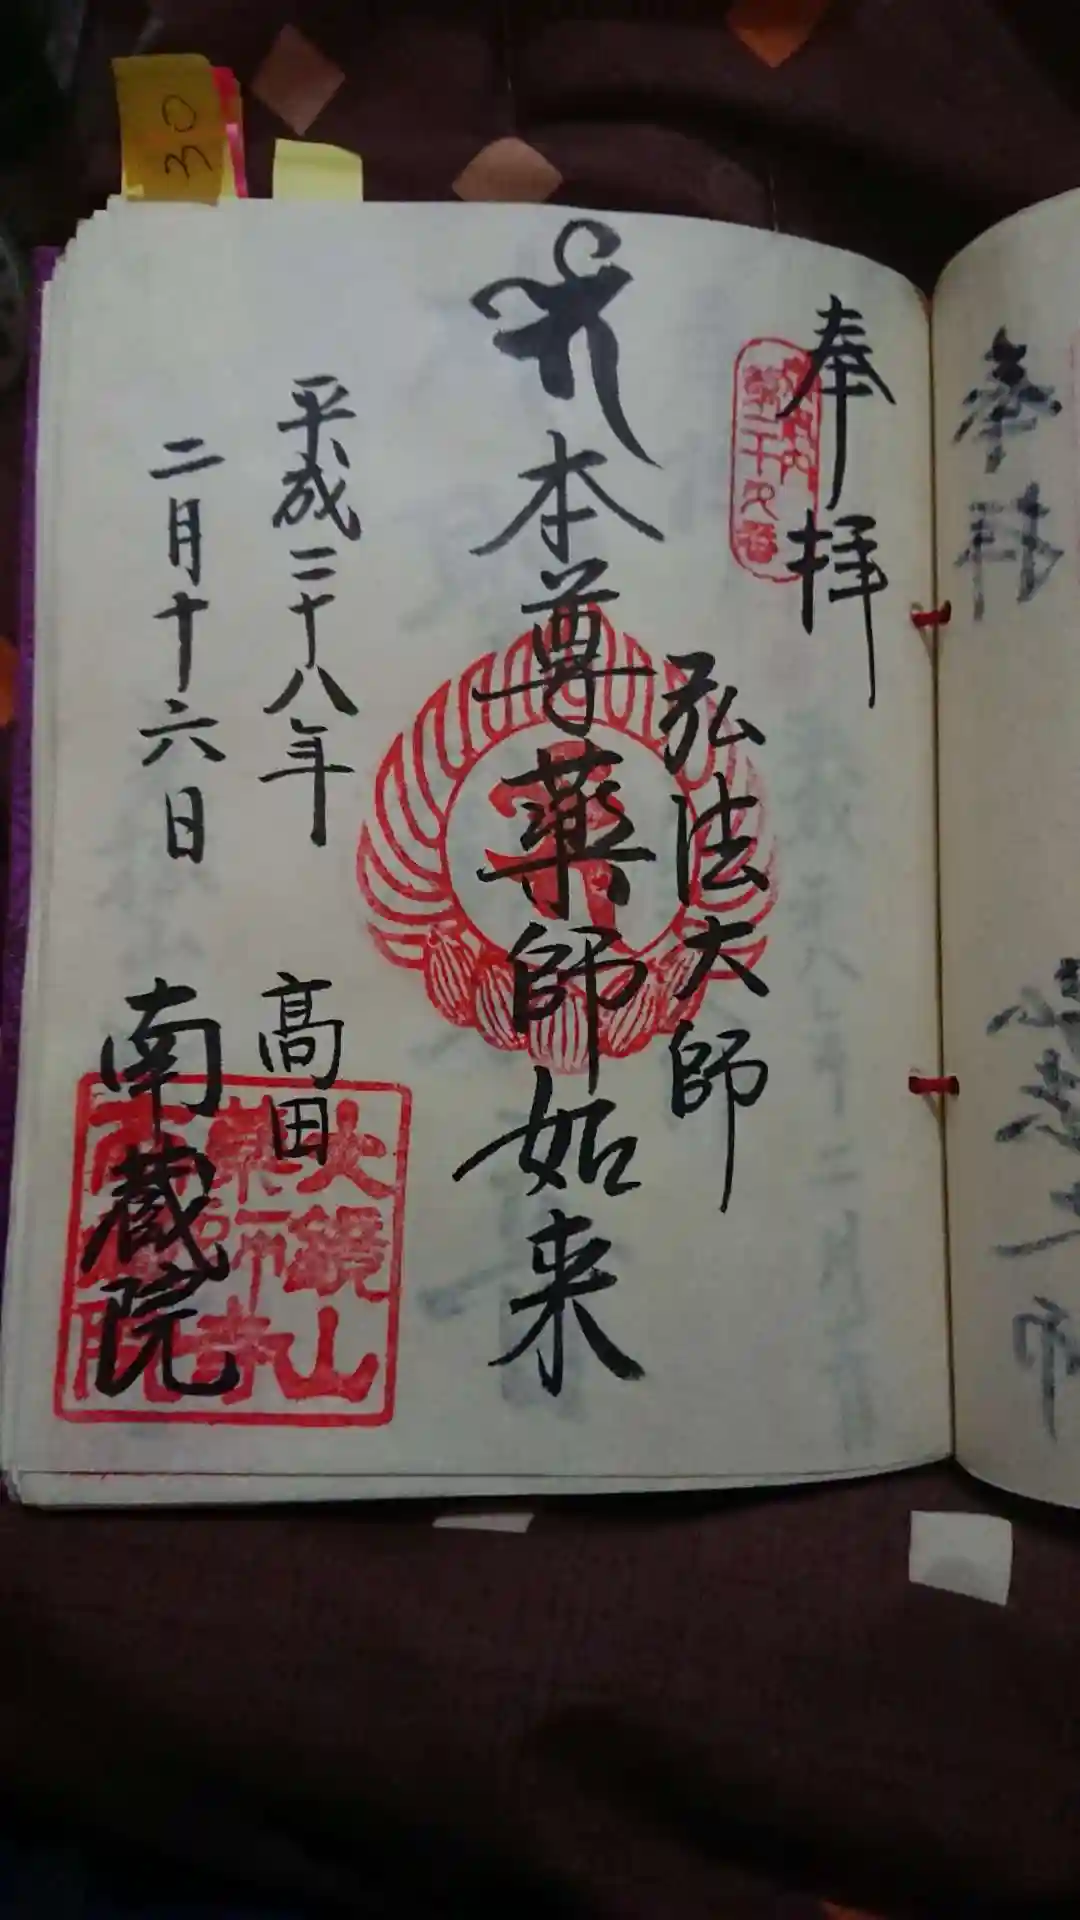 奉拝
弘法大師
本尊薬師如来
平成二十八年
二月十六日
高田
南蔵院
大鏡山
薬師寺
南蔵院
30
奉拝